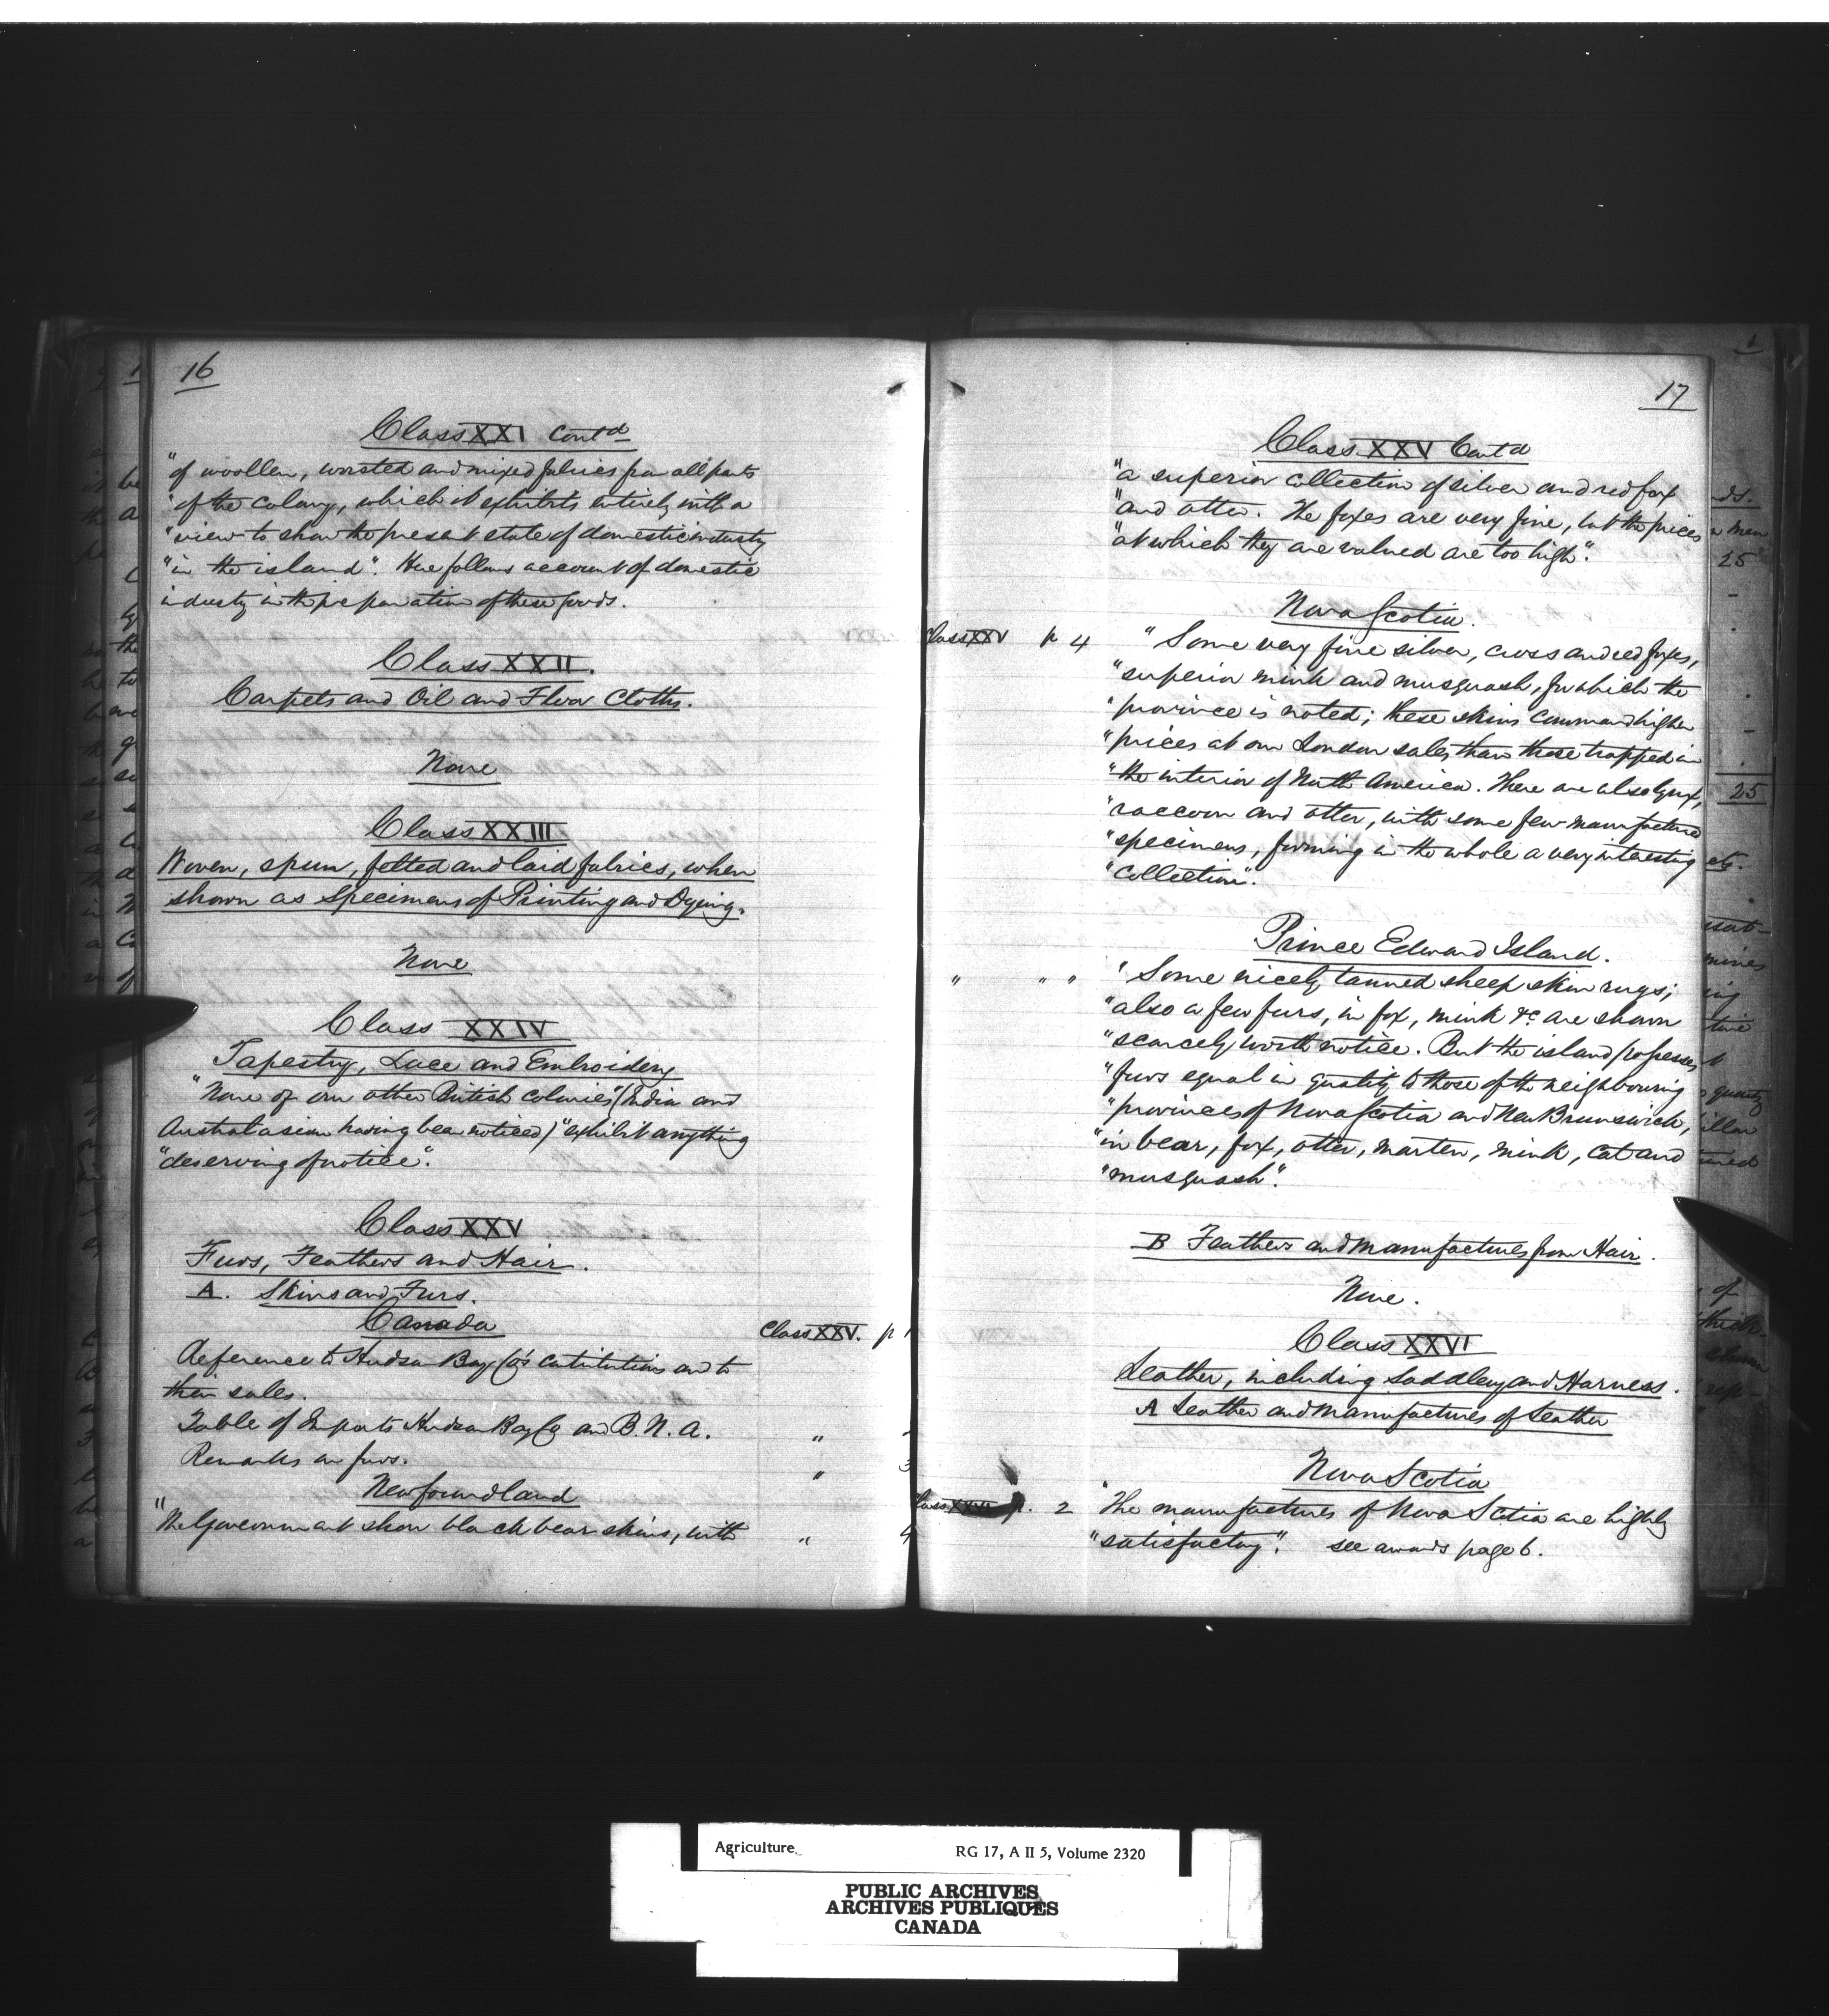 16
Class XXI Contd
"of woollen, worsted and mixed fabrics from all parts
"of the colony, which it exhibits entirely with a
"view to show the present state of domestic industry
"in the island". Here follows account of domestic
industry in the preparation of these goods.
Class XXII.
Carpets and Oil and Floor Cloths.
None
Class XXIII
Woven, spun, felted and laid fabrics, when
shown as Specimens of Printing and Dyeing.
None
Class XXIV
Tapestry, Lace and Embroidery
"None of our other British colonies" (India and
Australasian having been noticed) "exhibit anything
"deserving of notice".
Class XXV
Furs, Feathers and Hair.
A. Skins and Furs.
Canada
Class XXV. p 1
Reference to Hudson Bay Co's contributions and to
their sales.
Table of Imports Hudson Bay Co and B.N.A. "
Remarks on furs. " 3
Newfoundland
"The Government show black bear skins, with " 4
17
Class XXV Contd
"a superior collection of silver and red fox
"and otter. The foxes are very fine, but the prices
"at which they are valued are too high".
Nova Scotia.
Class XXV p 4 "Some very fine silver, cross and red foxes,
"superior mink and musquash, for which the
"province is noted; these skins command higher
"prices at our London sales than those trapped in
"the interior of North America. There are also lynx,
"raccoon and otter, with some few manufactured
"specimens, forming in the whole a very interesting
"collection".
Prince Edward Island.
" " " "Some nicely tanned sheep skin rugs;
"also a few furs, in fox, mink &c. are shown
"scarcely worth notice. But the island possesses
"furs equal in quality to those of the neighbouring
"provinces of Nova Scotia and New Brunswick,
"in bear, fox, otter, marten, mink, cat and
"musquash".
B Feathers and manufactures from Hair.
None.
Class XXVI
Leather, including Saddlery and Harness.
A Leather and Manufactures of Leather
Nova Scotia
Class XXVI p. 2 "The manufactures of Nova Scotia are highly
"satisfactory". see awards page 6.
Agriculture RG 17, A II 5, Volume 2320
PUBLIC ARCHIVES
ARCHIVES PUBLIQUES
CANADA